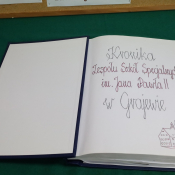 Kronika
Zespołu Szkół Specjalnych
im. Jana Pawła II
w Grajewie